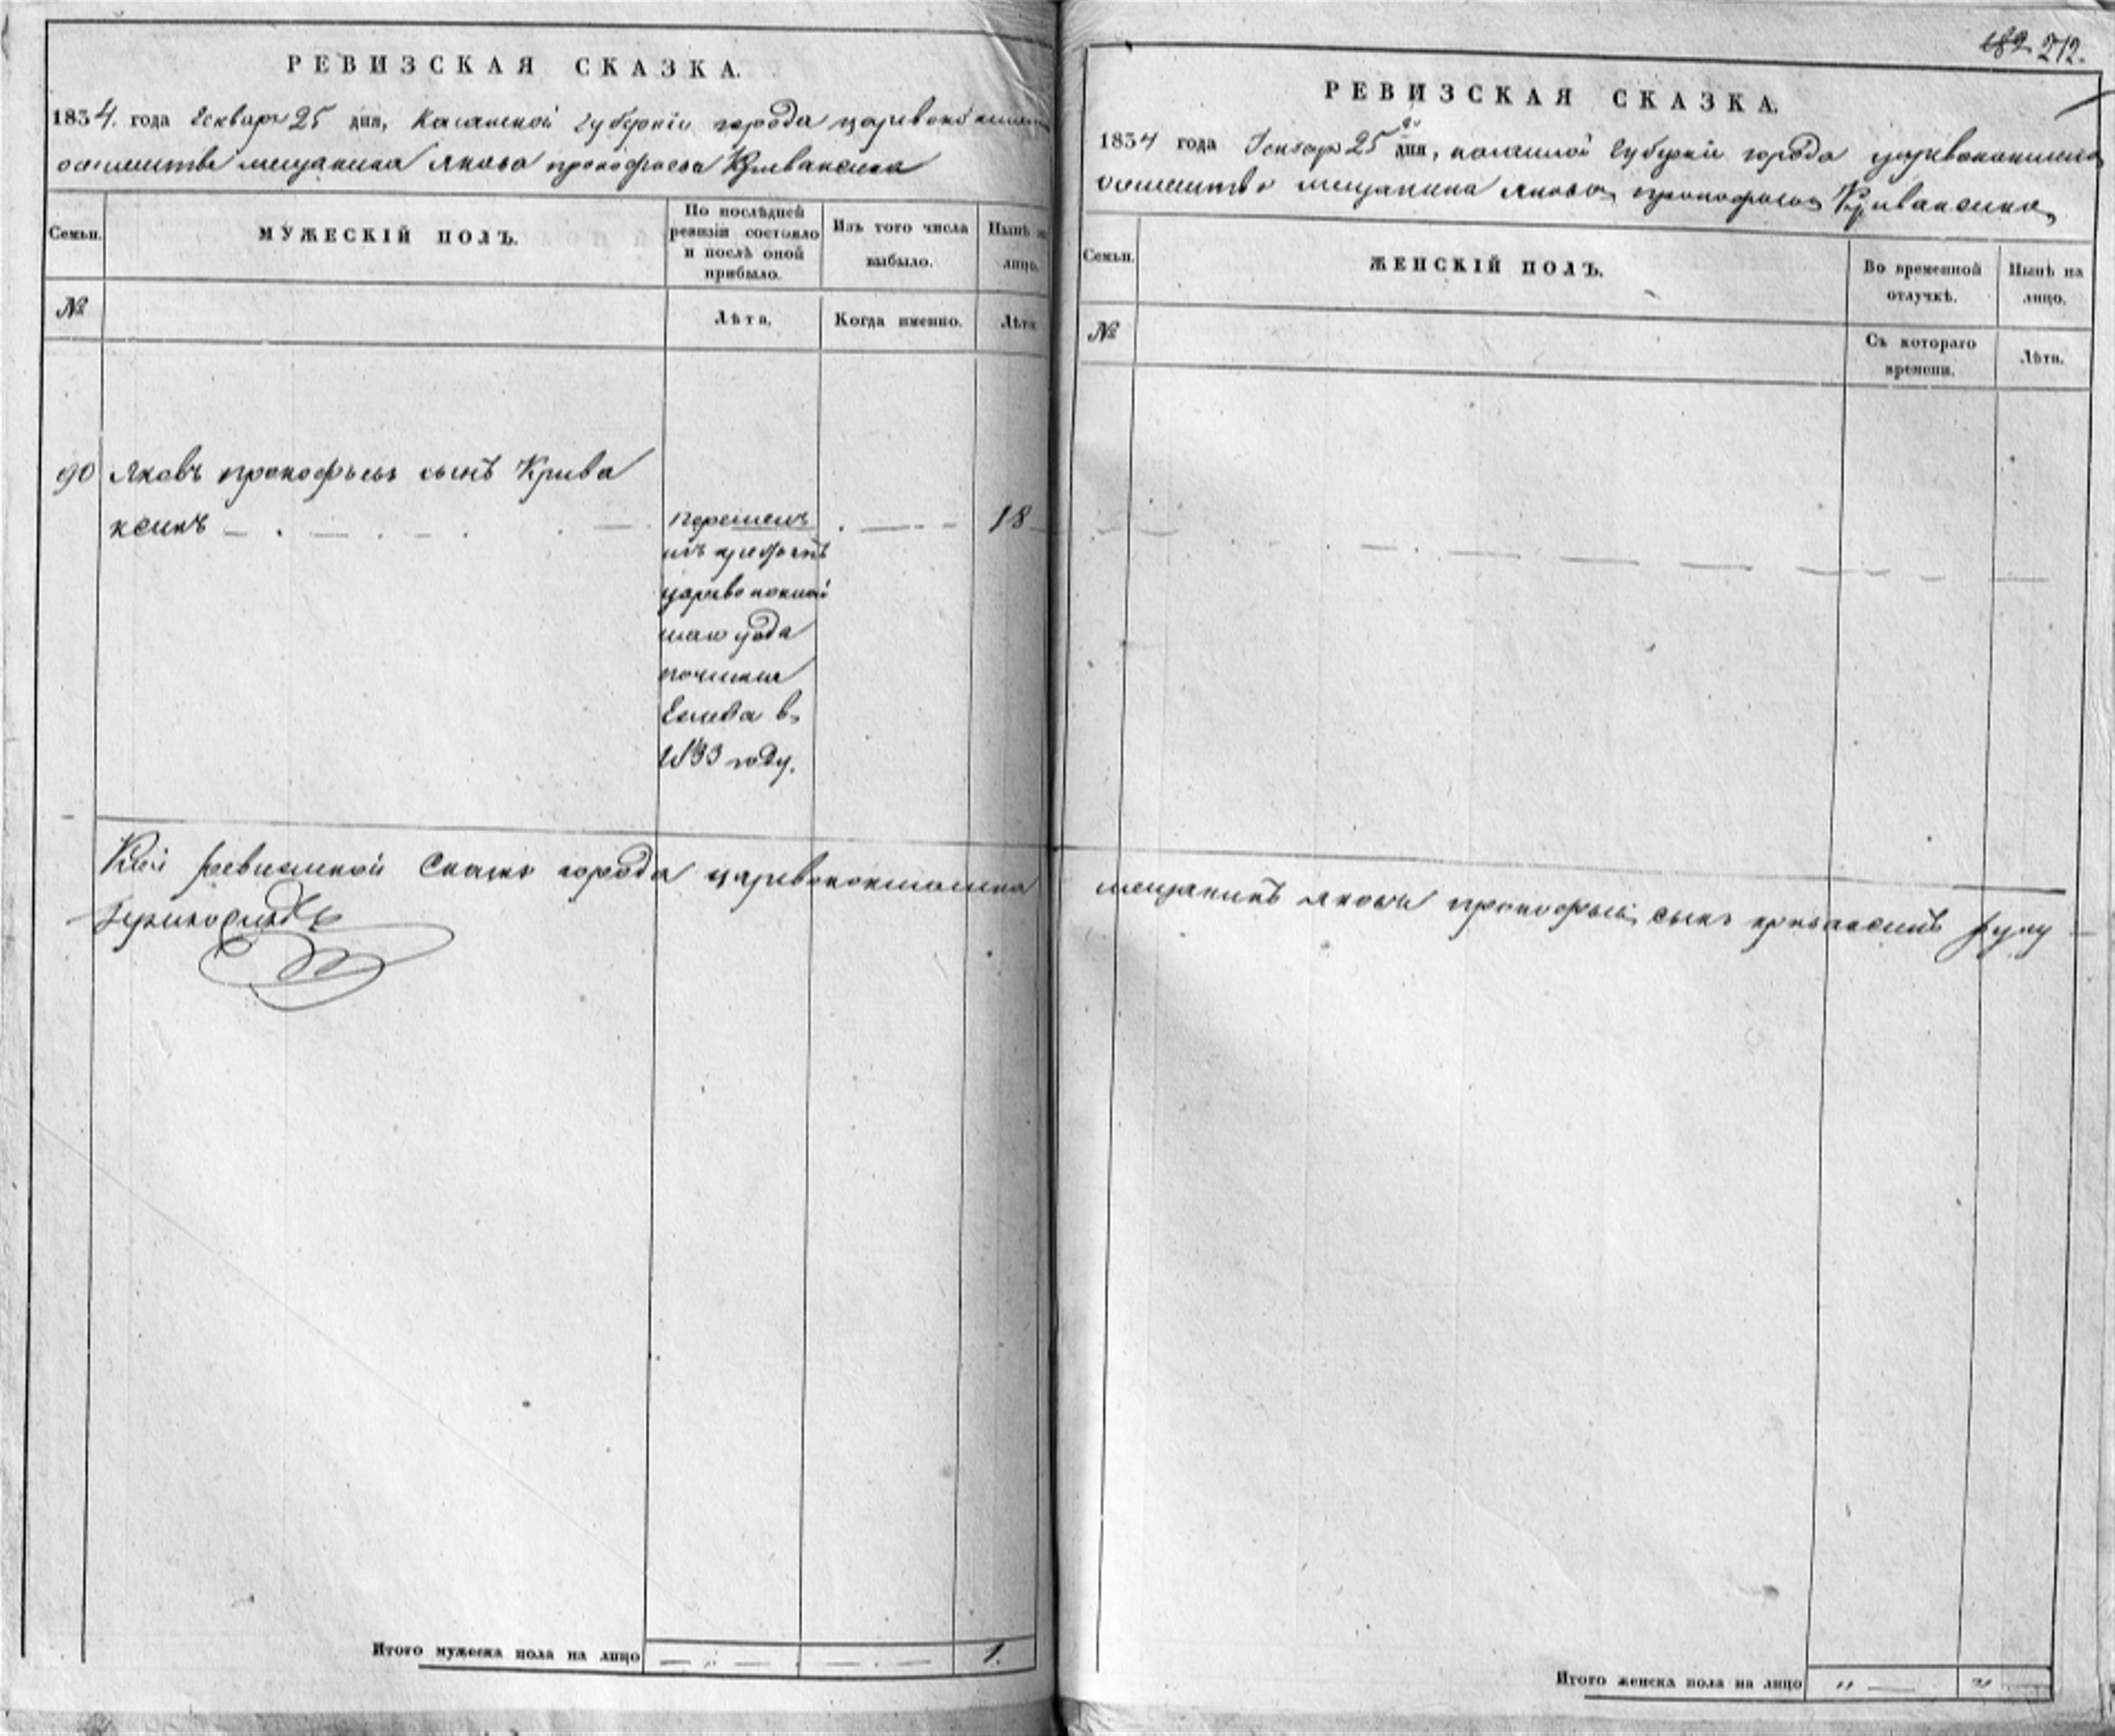 РЕВИЗСКАЯ СКАЗКА.
1834. года Генваря 25 дня, Казанской губернiи города царевококшайска
мещанина Якова прокофьева Криваксина
Семьи.
МУЖЕСКІЙ ПОЛЪ.
По послѣдней ревизіи состояло и послѣ оной прибыло.
Изъ того числа выбыло.
Нынѣ на лицо.
№
Лѣта.
Когда именно.
Лѣта
90 Яковъ прокофьевъ сынъ Крива
ксинъ
18
царевококшай
года
починка
въ
1833 году.
Ксей ревизской Сказке города царевококшайска
Итого мужеска пола на лицо
1.
189 212.
РЕВИЗСКАЯ СКАЗКА.
1834 года Генваря 25 го дня, казанской губернiи города царевококшайска
мещанина Якова прокофьева Криваксина
Семьи.
ЖЕНСКІЙ ПОЛЪ.
Во временной отлучкѣ.
Нынѣ на лицо.
№
Съ котораго времени.
Лѣта.
мещанинъ Яковъ прокофьевъ сынъ криваксинъ руку
Итого женска пола на лицо